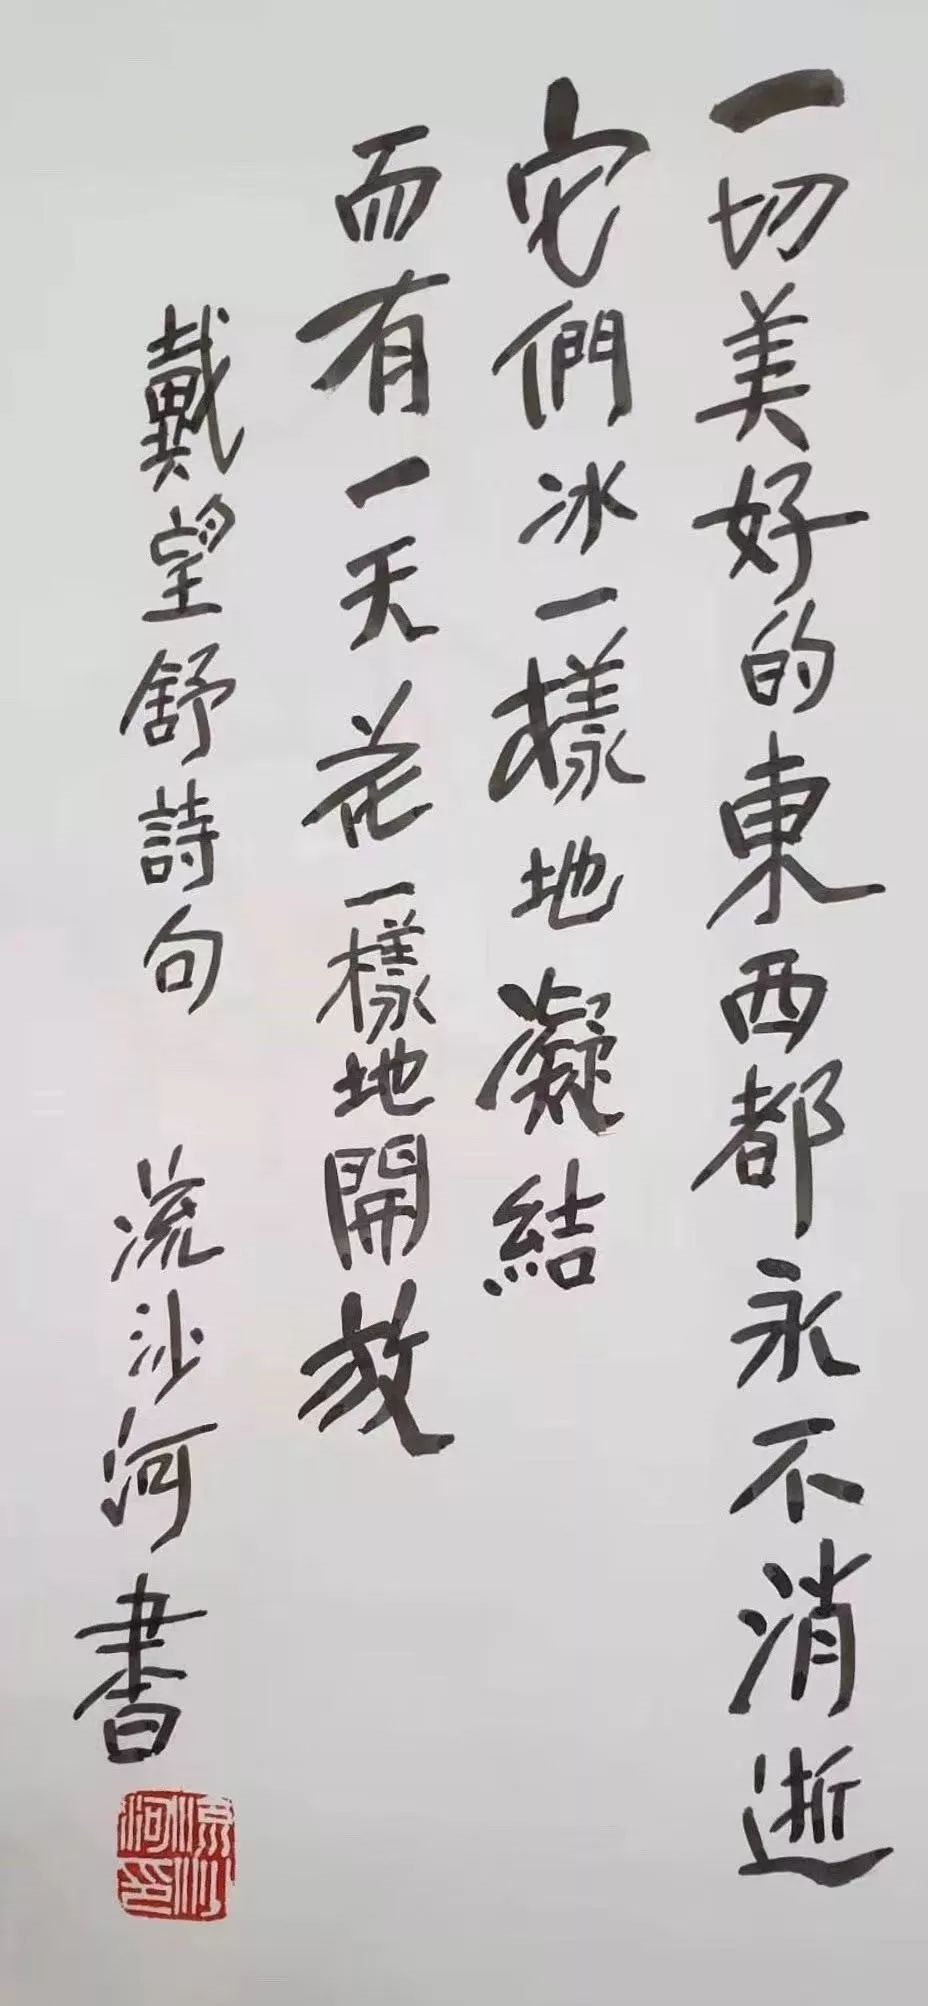 一切美好的東西都永不消逝
它們冰一樣地凝結
而有一天花一樣地開放
戴望舒詩句 流沙河書
流沙河印